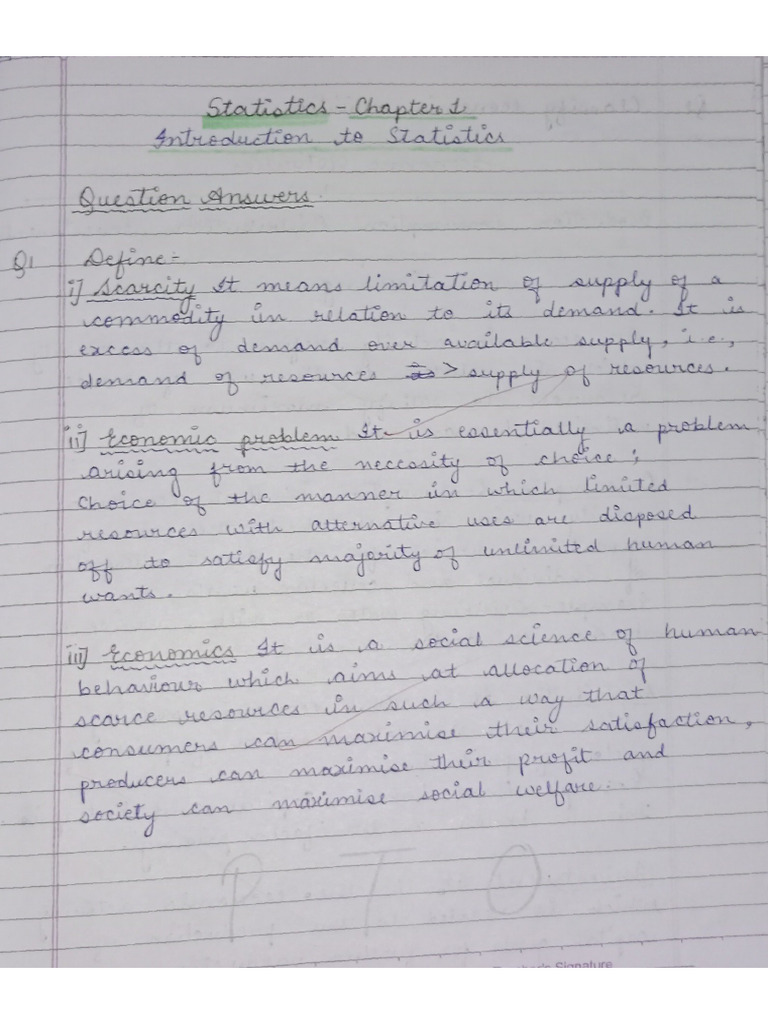 Statistics - Chapter 1
Introduction to Statistics
Question Answers
Q1 Define:-
i] Scarcity It means limitation of supply of a
commodity in relation to its demand. It is
excess of demand over available supply, i.e.,
demand of resources > supply of resources.
ii] Economic problem It is essentially a problem
arising from the neccesity of choice;
Choice of the manner in which limited
resources with alternative uses are disposed
off to satisfy majority of unlimited human
wants.
iii] Economics It is a social science of human
behaviour which aims at allocation of
scarce resources in such a way that
consumers can maximise their satisfaction,
producers can maximise their profit and
society can maximise social welfare.
P T O
Signature